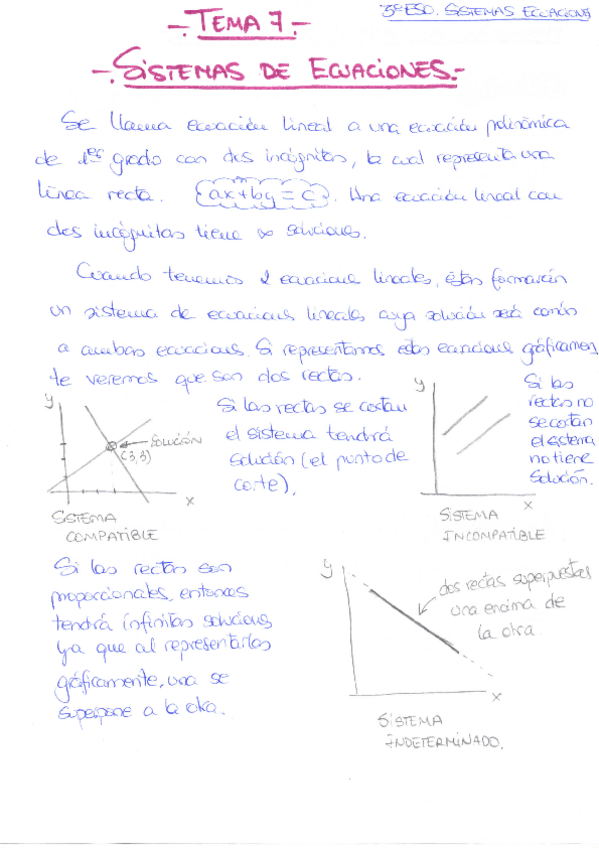 3º ESO. SISTEMAS ECUACIONES
- TEMA 7 -
- SISTEMAS DE ECUACIONES. -
Se llama ecuación lineal a una ecuación polinómica
de 1er grado con dos incógnitas, la cual representa una
línea recta. {ax+by=c}. Una ecuación lineal con
dos incógnitas tiene ∞ soluciones.
Cuando tenemos 2 ecuaciones lineales, éstas formarán
un sistema de ecuaciones lineales cuya solución será común
a ambas ecuaciones. Si representamos estas ecuaciones gráficamen
te veremos que son dos rectas.
y
SOLUCIÓN
(3,3)
x
SISTEMA
COMPATIBLE
Si las rectas se cortan
el sistema tendrá
solución (el punto de
corte),
y
x
SISTEMA
INCOMPATIBLE
Si las
rectas no
se cortan
el sistema
no tiene
solución.
Si las rectas son
proporcionales, entonces
tendrá infinitas soluciones
ya que al representarlas
gráficamente, una se
superpone a la otra.
y
dos rectas superpuestas
una encima de
la otra.
x
SISTEMA
INDETERMINADO.